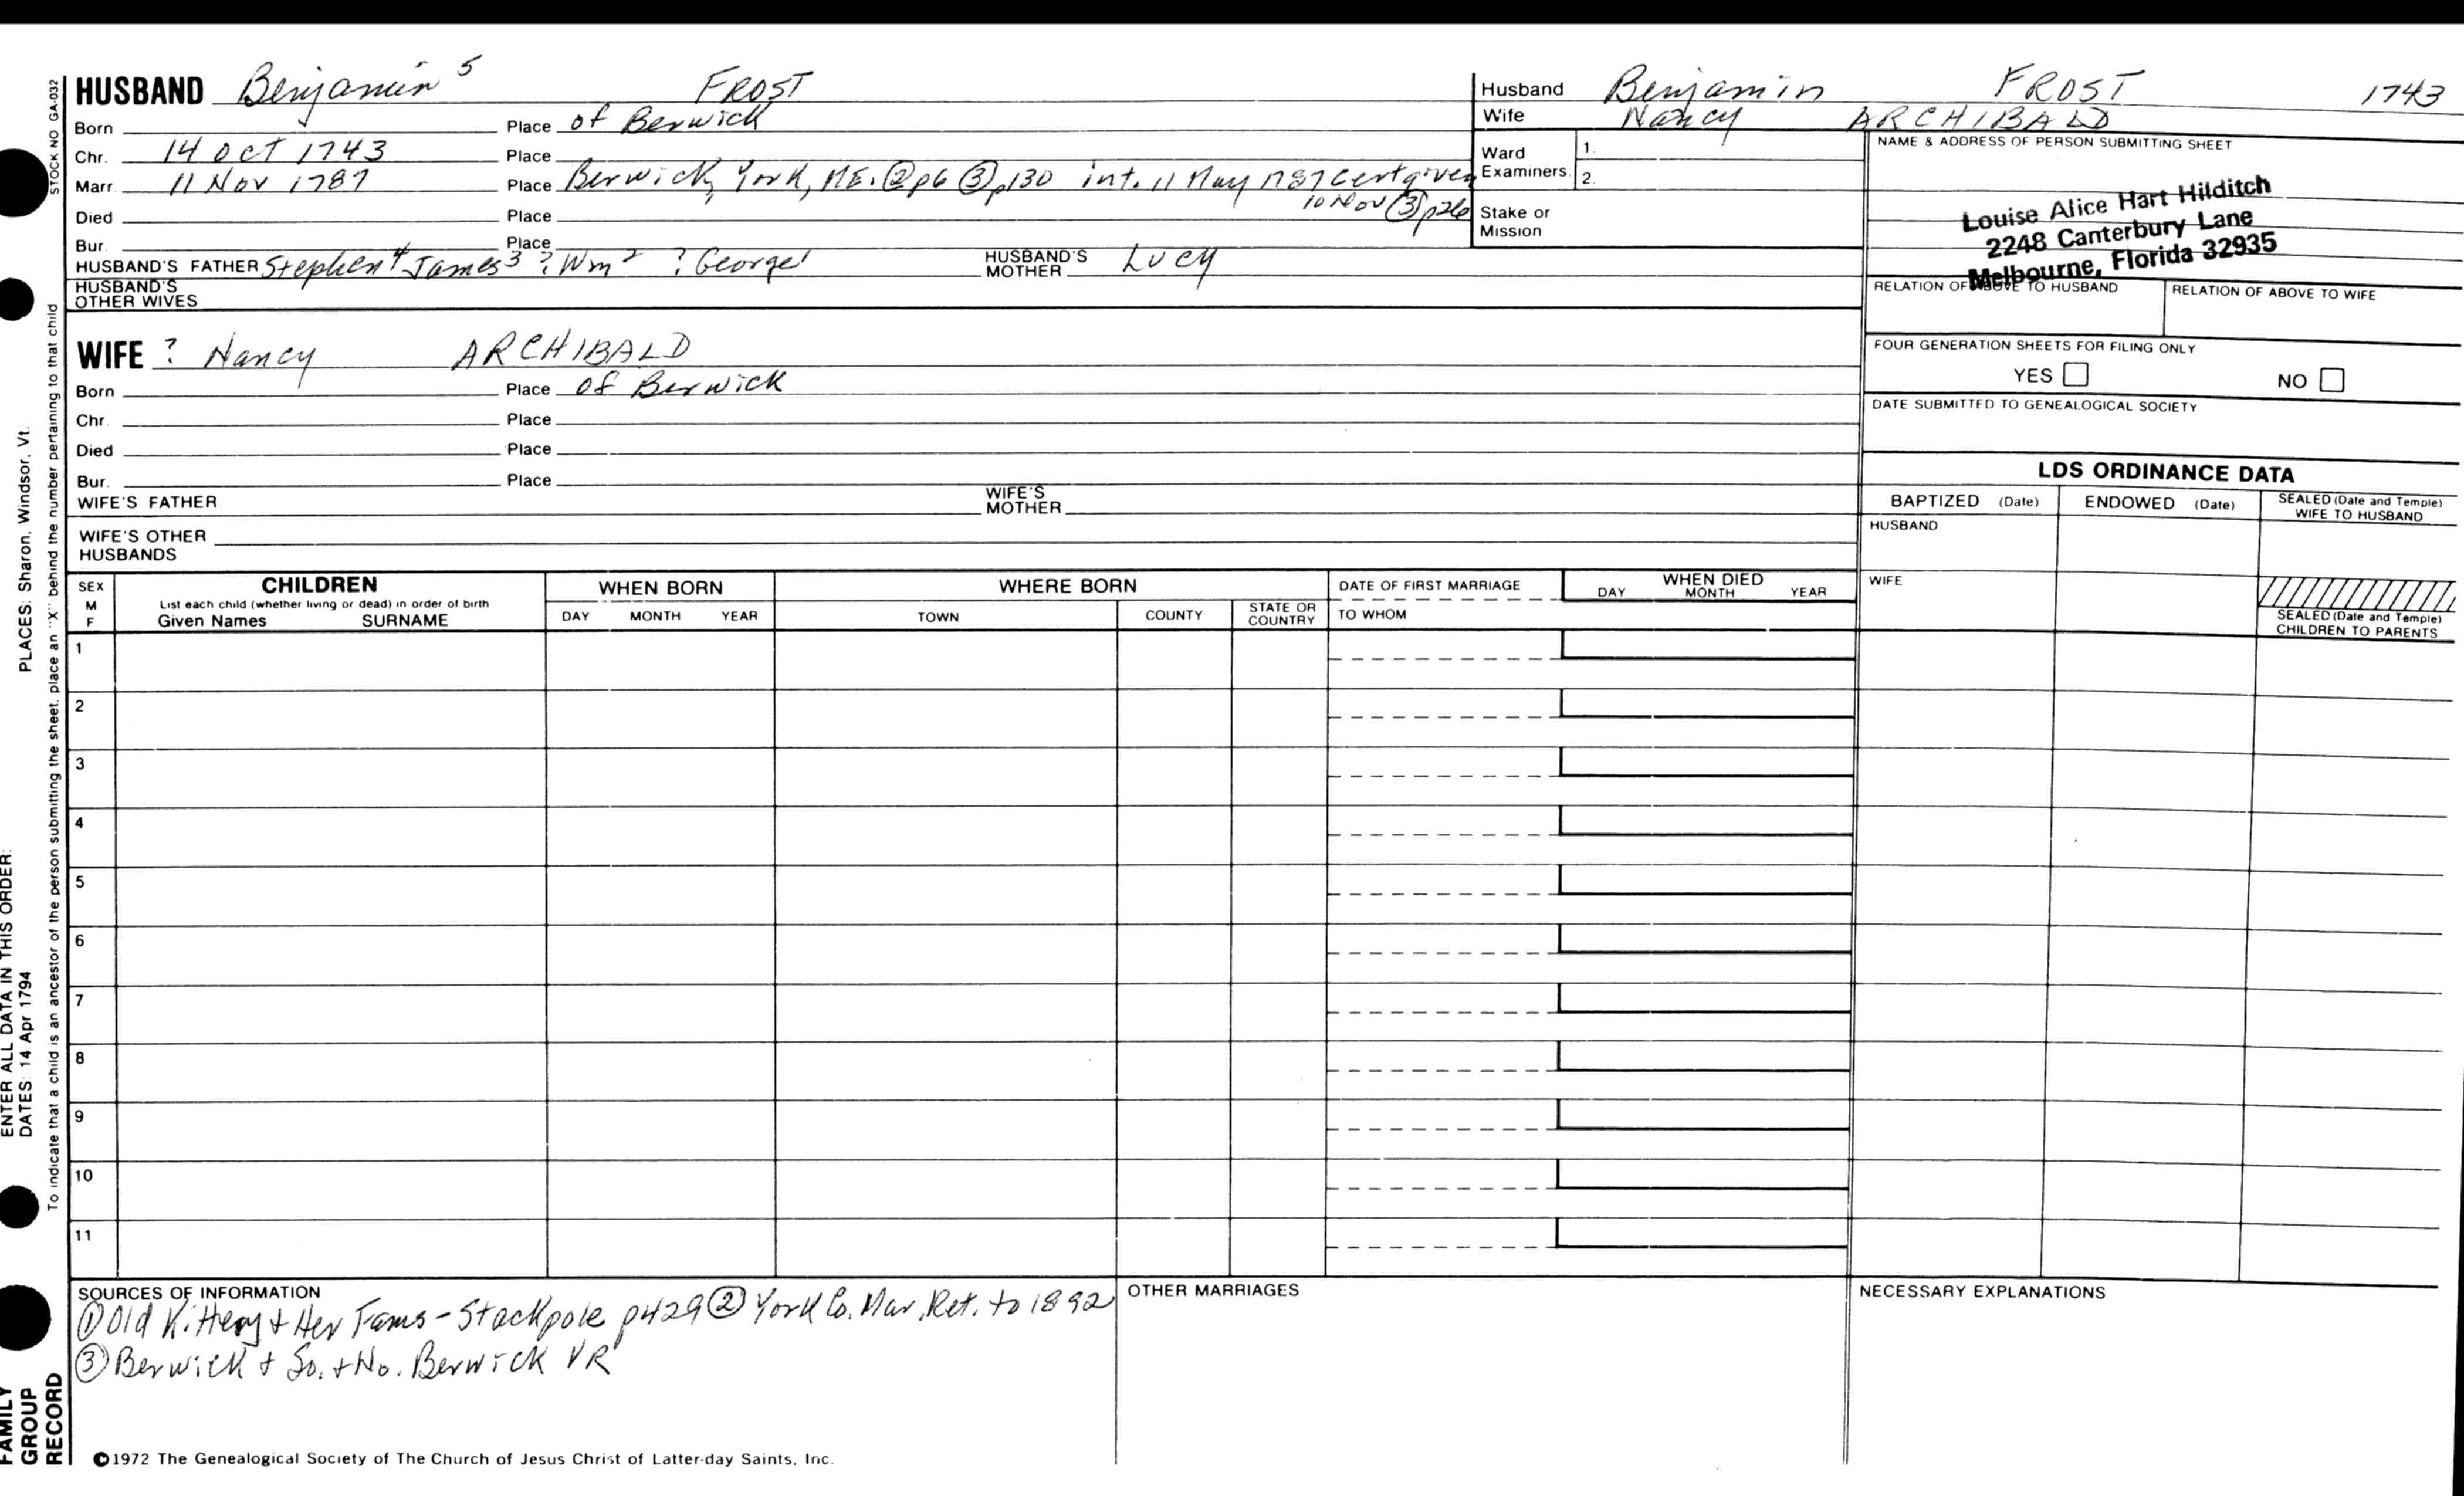 HUSBAND Benjamin 5 FROST
Born Place of Berwick
Chr. 14 Oct 1743 Place
Marr. 11 Nov 1787 Place Berwick, York, ME. ② p6 ③ p130 int. 11 May 1787 Cert given
10 Nov ③ p26
Died Place
Bur. Place
HUSBAND'S FATHER Stephen 4 James 3 ? Wm 2 ? George 1 HUSBAND'S MOTHER Lucy
HUSBAND'S OTHER WIVES
WIFE ? Nancy ARCHIBALD
Born Place of Berwick
Chr. Place
Died Place
Bur. Place
WIFE'S FATHER WIFE'S MOTHER
WIFE'S OTHER HUSBANDS
Husband Benjamin FROST 1743
Wife Nancy ARCHIBALD
Ward Examiners 1.
2.
Stake or Mission
NAME & ADDRESS OF PERSON SUBMITTING SHEET
Louise Alice Hart Hilditch
2248 Canterbury Lane
Melbourne, Florida 32935
RELATION OF ABOVE TO HUSBAND RELATION OF ABOVE TO WIFE
FOUR GENERATION SHEETS FOR FILING ONLY
YES NO
DATE SUBMITTED TO GENEALOGICAL SOCIETY
LDS ORDINANCE DATA
BAPTIZED (Date) ENDOWED (Date) SEALED (Date and Temple) WIFE TO HUSBAND
HUSBAND
WIFE
SEALED (Date and Temple) CHILDREN TO PARENTS
SEX M F
CHILDREN
List each child (whether living or dead) in order of birth
Given Names SURNAME
WHEN BORN
DAY MONTH YEAR
WHERE BORN
TOWN COUNTY STATE OR COUNTRY
DATE OF FIRST MARRIAGE
TO WHOM
WHEN DIED
DAY MONTH YEAR
1
2
3
4
5
6
7
8
9
10
11
SOURCES OF INFORMATION
① Old Kittery + Her Fams - Stackpole p429 ② York Co. Mar. Ret. to 1892
③ Berwick + So. + No. Berwick VR
OTHER MARRIAGES
NECESSARY EXPLANATIONS
©1972 The Genealogical Society of The Church of Jesus Christ of Latter-day Saints, Inc.
STOCK NO GA-032
To indicate that a child is an ancestor of the person submitting the sheet, place an "X" behind the number pertaining to that child
ENTER ALL DATA IN THIS ORDER:
DATES: 14 Apr 1794 PLACES: Sharon, Windsor, Vt.
FAMILY GROUP RECORD